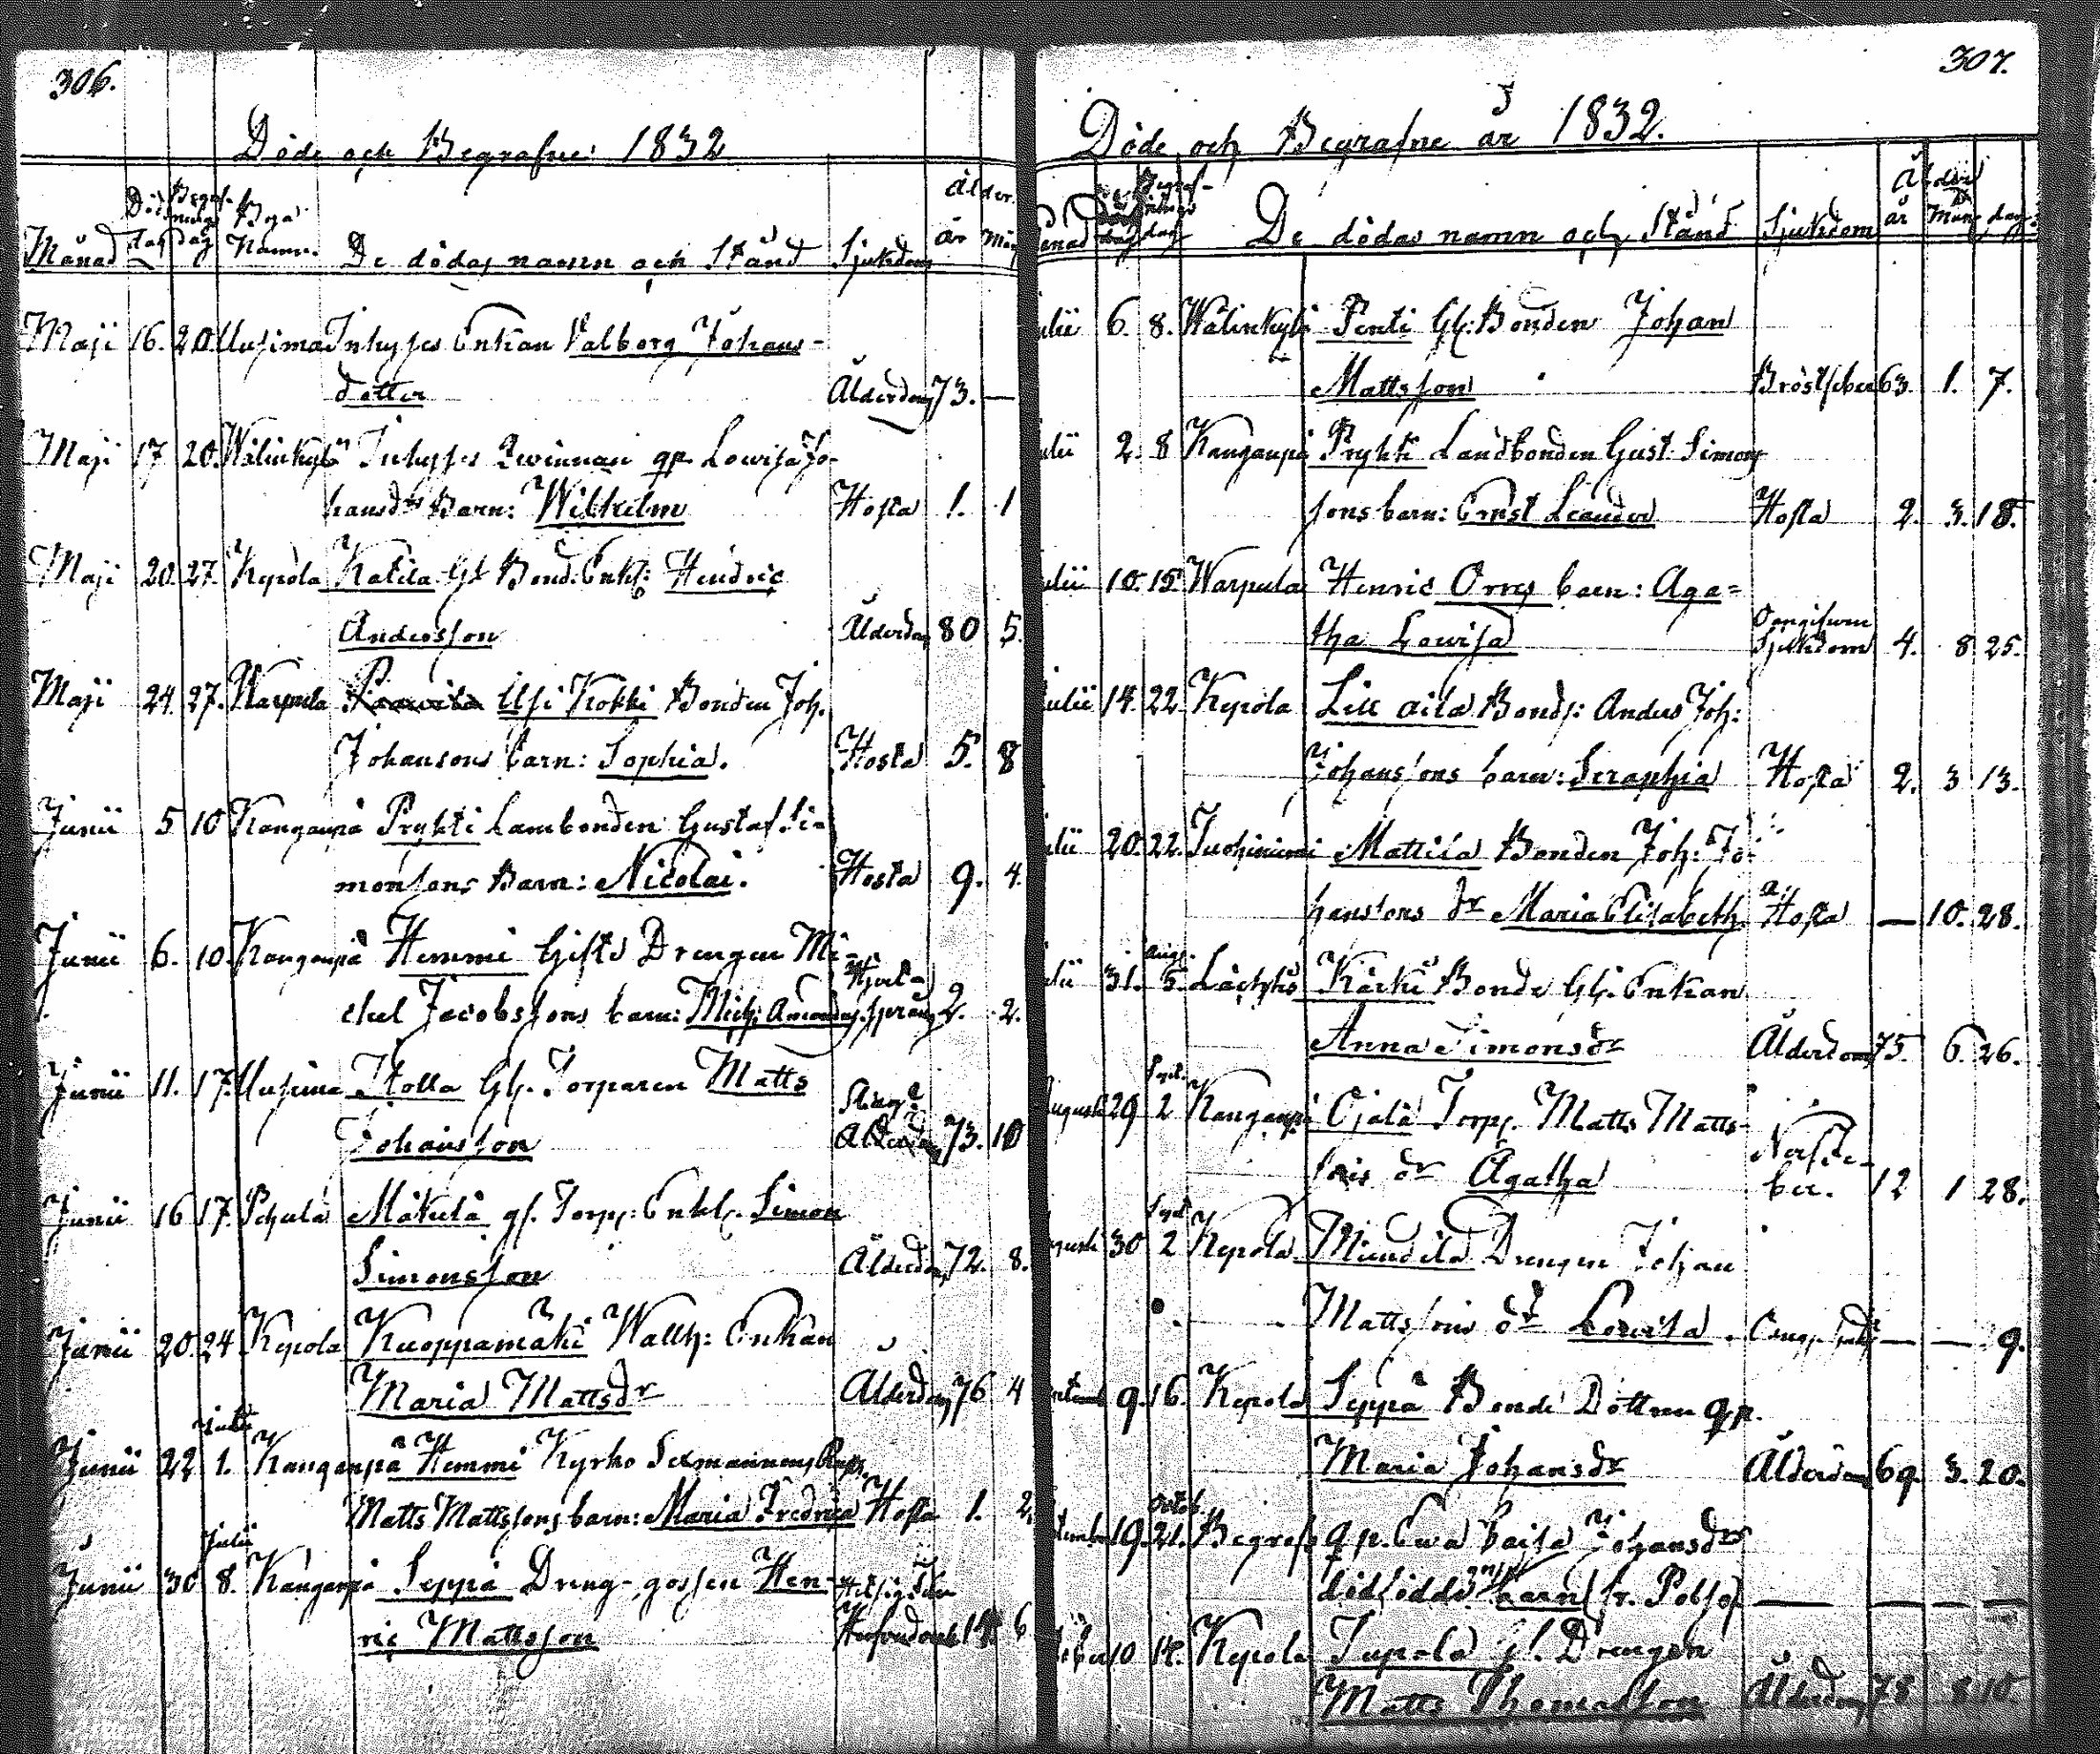 306.
Döde och Begrafne 1832
Månad Döds dag Begrafnings dag Byga Namn. De dödas namn och Stånd Sjukdom Ålder. år Mån
Maji 16. 20. Uusima Inhyses Enkan Valborg Johans-
dotter Ålderdom 73. —
Maji 17 20. Wälinkylä Inhyses Qwinnan qp Lowisa Jo-
hansdrs Barn: Wilhelm Hosta 1. 1
Maji 20. 27. Kepola Katila Gl. Bond: Enkl: Hendric
Andersson Ålderdom 80 5.
Maji 24. 27. Warpula Usi Kokki Bonden Joh.
Johansons barn: Sophia. Hosta 5. 8
Junii 5 10 Kanganpä Prykti Lambonden Gustaf Si-
monsons Barn: Nicolai. Hosta 9. 4.
Junii 6. 10. Kanganpä Hemmi Gifte Drengen Mi-
chel Jacobssons barn: Mich: 2. 2.
Junii 11. 17. Uusima Stolla Gl. Torparen Matts
Johansson Ålderdom 73. 10
Junii 16 17. Pehula Mäkelä gl. Torp: Enkl. Simon
Simonsson Ålderdom 72. 8.
Junii 20. 24 Kepola Kuoppamäki Wallh: Enkan
Maria Mattsdr Ålderdom 76 4
Julii
Junii 22 1. Kanganpä Hemmi Kyrko Sexmannens
Matts Mattssons barn: Maria Fredrica Hosta 1. 2.
Julii
Junii 30 8. Kanganpä Seppä Dreng-gossen Hen-
ric Mattsson 6
307.
Döde och Begrafne år 1832.
De dödas namn och Stånd Sjukdom Ålder år Mån dag:
ulii 6. 8. Wälinkylä Penti Gl: Bonden Johan
Mattsson Bröstfeber 63. 1. 7.
ulii 2. 8 Kanganpä Prykti Landbonden Gust. Simon
sons barn: Ernst Leander Hosta 2. 3. 18.
ulii 10. 15. Warpula Henric Orres barn: Aga=
tha Lowisa Oangifwen Sjukdom 4. 8 25.
ulii 14. 22. Kepola Lill aila Bonds: Anders Joh:
Johanssons barn: Seraphia Hosta 2. 3 13.
ulii 20. 22. Juohiniemi Mattila Bonden Joh: Jo-
hanssons dr Maria Elisabeth Hosta — 10. 28.
Aug.
lii 31. 5. Lächtis Kärki Bonde Gl. Enkan
Anna Simonsdr Ålderdom 75. 6. 26.
Sept.
ugusti 29 2 Kanganpä Ojala Torp. Matts Matts-
sons dr Agatha Nerffe-
ber. 12 1 28.
Sept
gusti 30 2 Kepola Miundila Drengen Johan
Mattssons dr Lovisa. — — 9.
9. 16. Kepola Seppä Bonde Dottren qp.
Maria Johansdr Ålderdom 69. 3. 20.
Octob.
tember 19. 21. Begrafs qp. Ewa Caisa Johansdrs
dödfödde barn fr. —
10 14. Kepola Tupala Gl. Drengen
Matts Thomasson Ålderdom 78 8 10